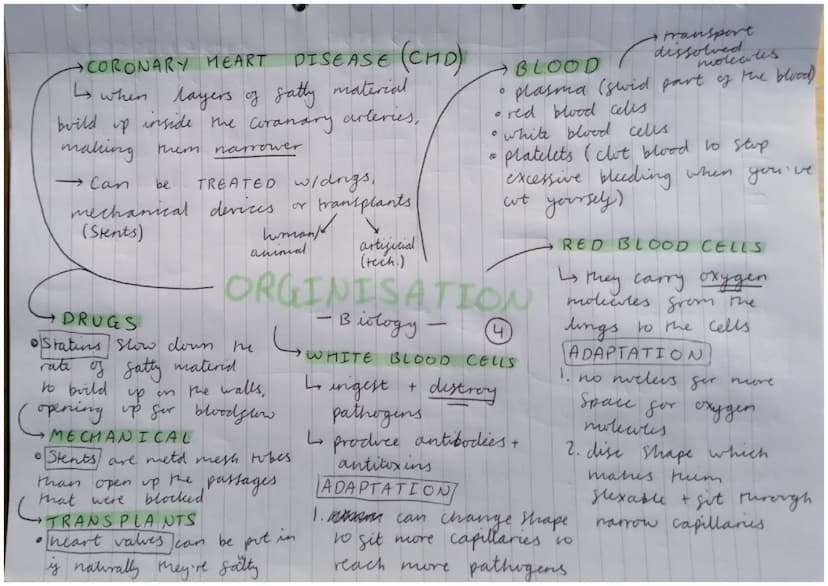 CORONARY HEART DISEASE (CHD)
↳ when layers of fatty material
build up inside the coranary arteries,
making them narrower
→ Can be TREATED w/drugs,
mechanical devices or transplants
(Stents)
human/
animal
artificial
(tech.)
BLOOD
transport
dissolved
molecules
• plasma (fluid part of the blood)
• red blood cells
• white blood cells
• platelets (clot blood to stop
excessive bleeding when you've
cut yourself)
ORGINISATION
- Biology -
4
DRUGS
• Statins slow down the
rate of fatty material
to build up on the walls,
opening up for bloodflow
MECHANICAL
• Stents are metal mesh tubes
than open up the passages
that were blocked
TRANSPLANTS
• heart valves can be put in
if naturally they're faulty
WHITE BLOOD CELLS
↳ ingest + destroy
pathogens
↳ produce antibodies +
antitoxins
ADAPTATION
1. can change shape
to fit more capillaries to
reach more pathogens
RED BLOOD CELLS
↳ they carry oxygen
molecules from the
lungs to the cells
ADAPTATION
1. no nucleus for more
space for oxygen
molecules
2. disc shape which
makes them
flexable + fit through
narrow capillaries